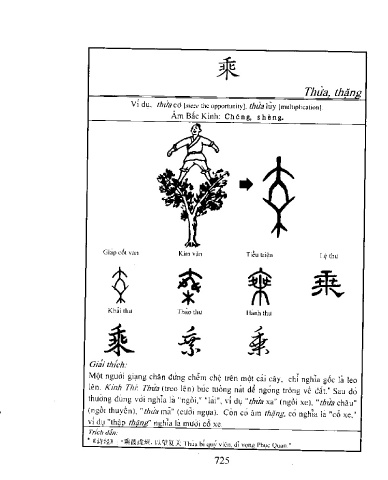 乘
Thừa, thặng
Ví dụ. thừa cơ [seize the opportunity], thừa lũy [multiplication]
Âm Bắc Kinh: Chéng, shèng.
Giáp cốt văn Kim văn Tiểu triện Lệ thư
乘
Khải thư Thảo thư Hành thư
乘 乘 乘
Giải thích:
Một người giạng chân đứng chễm chệ trên một cái cây, chỉ nghĩa gốc là leo
lên. Kinh Thi: Thừa (treo lên) bức tường nát để ngóng trông về đất." Sau đó
thường dùng với nghĩa là "ngồi," "lái", ví dụ "thừa xa" (ngồi xe), "thừa châu"
(ngồi thuyền), "thừa mã" (cưỡi ngựa). Còn có âm thặng, có nghĩa là "cỗ xe,"
ví dụ "thập thặng" nghĩa là mười cỗ xe.
Trích dẫn:
* 《詩經》 "乘彼垝垣, 以望复关 Thừa bỉ quỷ viên, dĩ vọng Phục Quan."
725